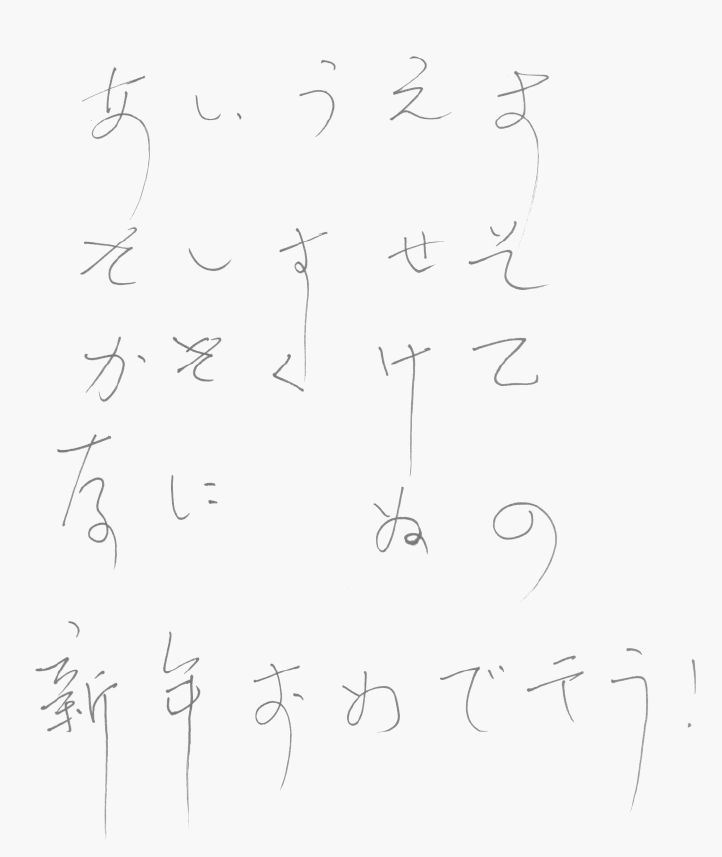 あいうえお
さしすせそ
かきくけて
なに ぬの
新年おめでとう!